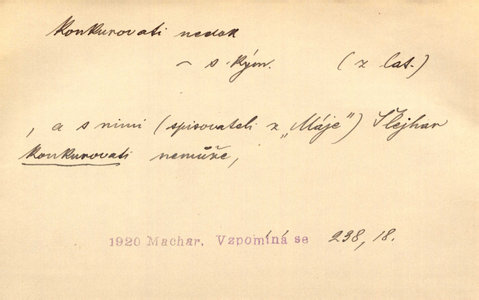 konkurovati nedok
~ s kým. (z lat.)
, a s nimi (spisovateli z „Máje") Šlejhar
konkurovati nemůže,
1920 Machar. Vzpomíná se 238, 18.